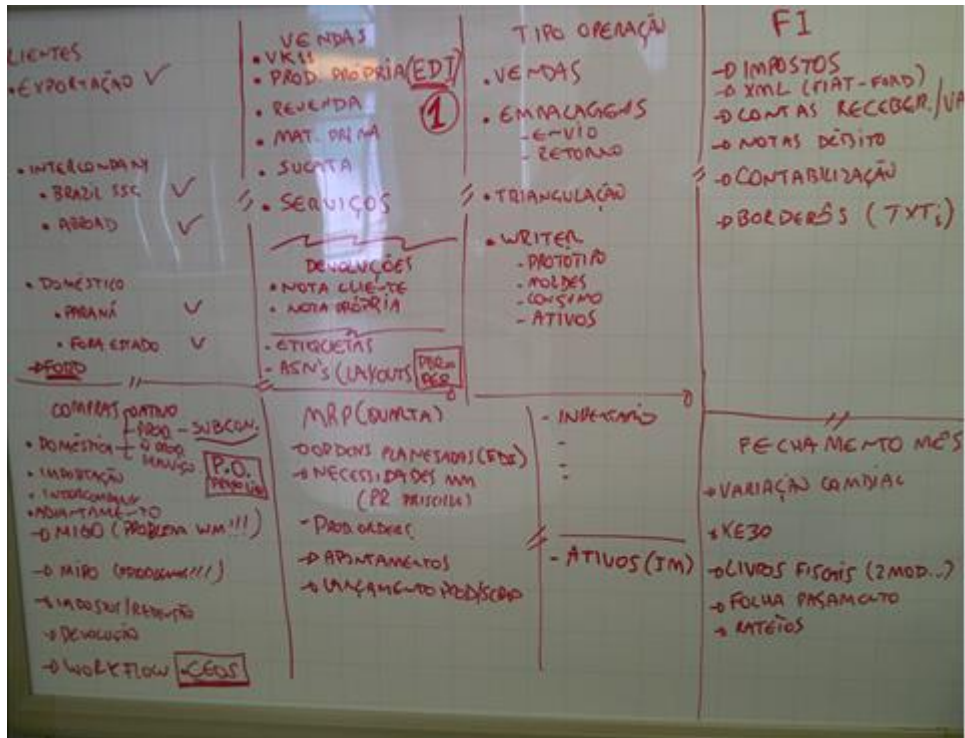 LIENTES
• EXPORTAÇÃO ✓
• INTERCOMPANY
• BRAZIL SSC ✓
• ABROAD ✓
• DOMÉSTICO
• PARANÁ ✓
• FORA ESTADO ✓
→ FORD
VENDAS
• VK11
• PROD. PRÓPRIA (EDI)
• REVENDA
1
• MAT. PRIMA
• SUCATA
• SERVIÇOS
DEVOLUÇÕES
• NOTA CLIENTE
• NOTA PRÓPRIA
- ETIQUETAS
- ASN's (LAYOUTS
TIPO OPERAÇÃO
• VENDAS
• EMBALAGENS
- ENVIO
- RETORNO
• TRIANGULAÇÃO
• WRITER
- PROTÓTIPO
- MOLDES
- CONSUMO
- ATIVOS
FI
→ IMPOSTOS
→ XML (FIAT-FORD)
→ CONTAS RECEBER./
→ NOTAS DÉBITO
→ CONTABILIZAÇÃO
→ BORDERÔS (TXTs)
COMPRAS → ATIVO
PROD - SUBCON.
• DOMÉSTICA
SERVIÇO
P.O.
• IMPORTAÇÃO
• INTERCOMPANY
• ADIANTAMENTO
→ MIGO (PROBLEM WM!!!)
→ MIRO (PROBLEMS!!!)
→ IMPOSTOS/RETENÇÃO
→ DEVOLUÇÃO
→ WORKFLOW • CEOS
MRP (QUARTA)
→ ORDENS PLANEJADAS (EDI)
→ NECESSIDADES MM
(PR PRISCILA)
- PROD. ORDERS
→ APONTAMENTOS
→ LANÇAMENTO PROD/SCRAP
- INVENTARIO
-
-
- ATIVOS (IM)
FECHAMENTO MÊS
→ VARIAÇÃO CAMBIAL
→ KE30
→ LIVROS FISCAIS (2MOD...)
→ FOLHA PAGAMENTO
→ RATEIOS